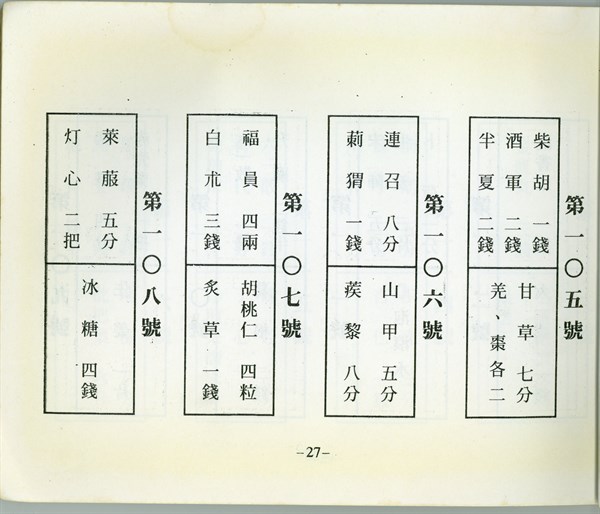 第一〇五號
柴胡一錢
酒軍二錢
半夏二錢
甘草七分
羌、棗各二
第一〇六號
連召八分
萴猬一錢
山甲五分
蒺黎八分
第一〇七號
福員四兩
白朮三錢
胡桃仁四粒
炙草一錢
第一〇八號
萊菔五分
灯心二把
冰糖四錢
-27-